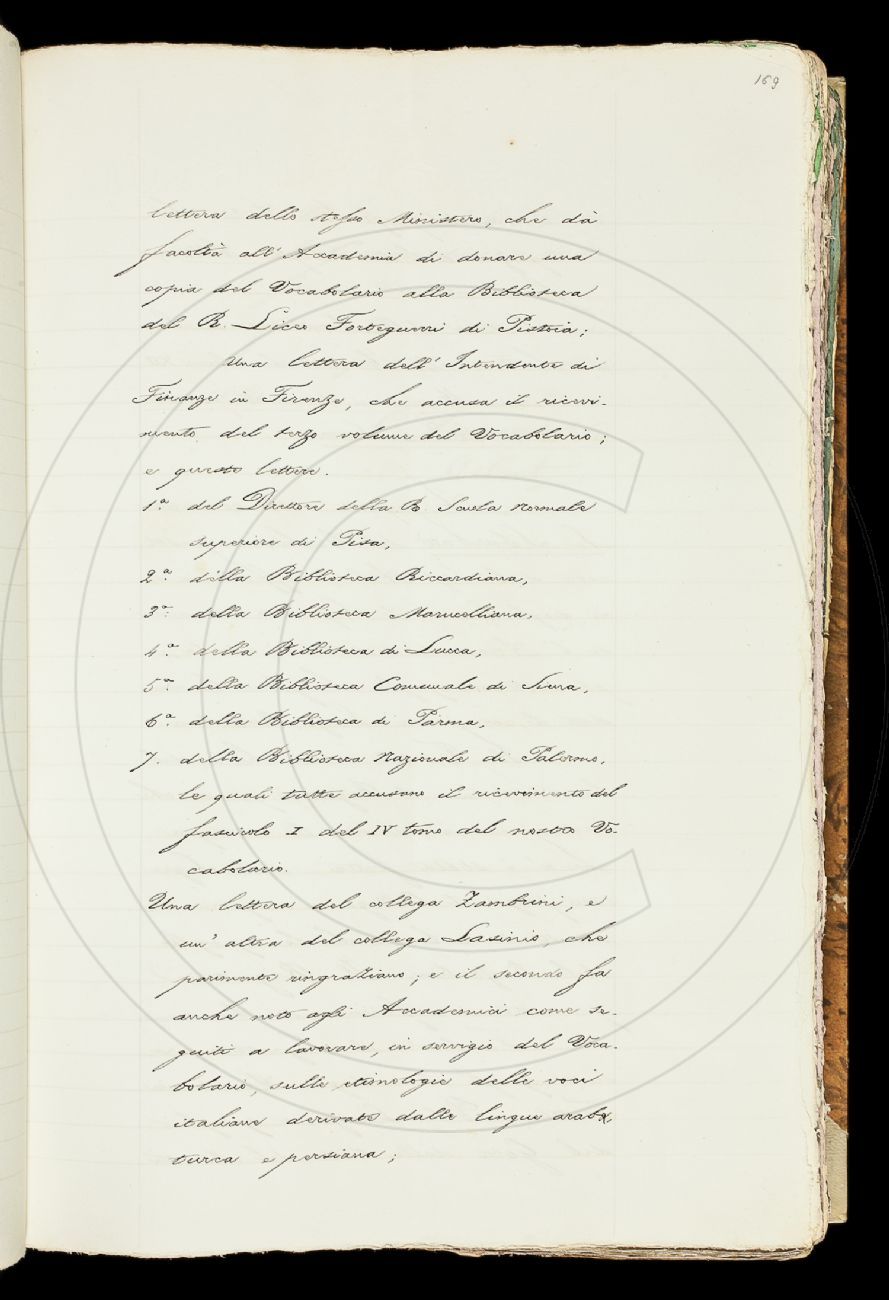 169
lettera dello stesso Ministero, che dà
facoltà all' Accademia di donare una
copia del Vocabolario alla Biblioteca
del R. Liceo Forteguerri di Pistoia;
Una lettera dell' Intendente di
Finanze in Firenze, che accusa il ricevi-
mento del terzo volume del Vocabolario;
e queste lettere.
1ª. del Direttore della R. Scuola Normale
superiore di Pisa,
2ª. della Biblioteca Riccardiana,
3ª. della Biblioteca Marucelliana,
4ª. della Biblioteca di Lucca,
5ª. della Biblioteca Comunale di Siena,
6ª. della Biblioteca di Parma,
7. della Biblioteca Nazionale di Palermo,
le quali tutte accusano il ricevimento del
fascicolo I del IV tomo del nostro Vo-
cabolario.
Una lettera del collega Zambrini, e
un' altra del collega Lasinio, che
parimente ringraziano; e il secondo fa
anche noto agli Accademici come se-
guiti a lavorare, in servigio del Voca-
bolario, sulle etimologie delle voci
italiane derivate dalle lingue araba,
turca e persiana;